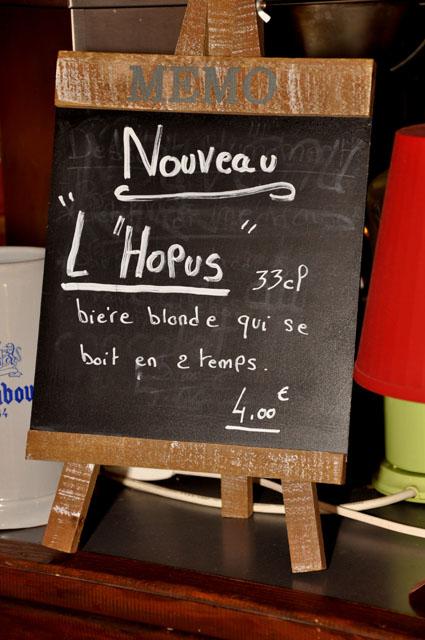 MEMO
Nouveau
"L "Hopus"
33cP
bière blonde qui se
boit en 2 temps.
4.00€